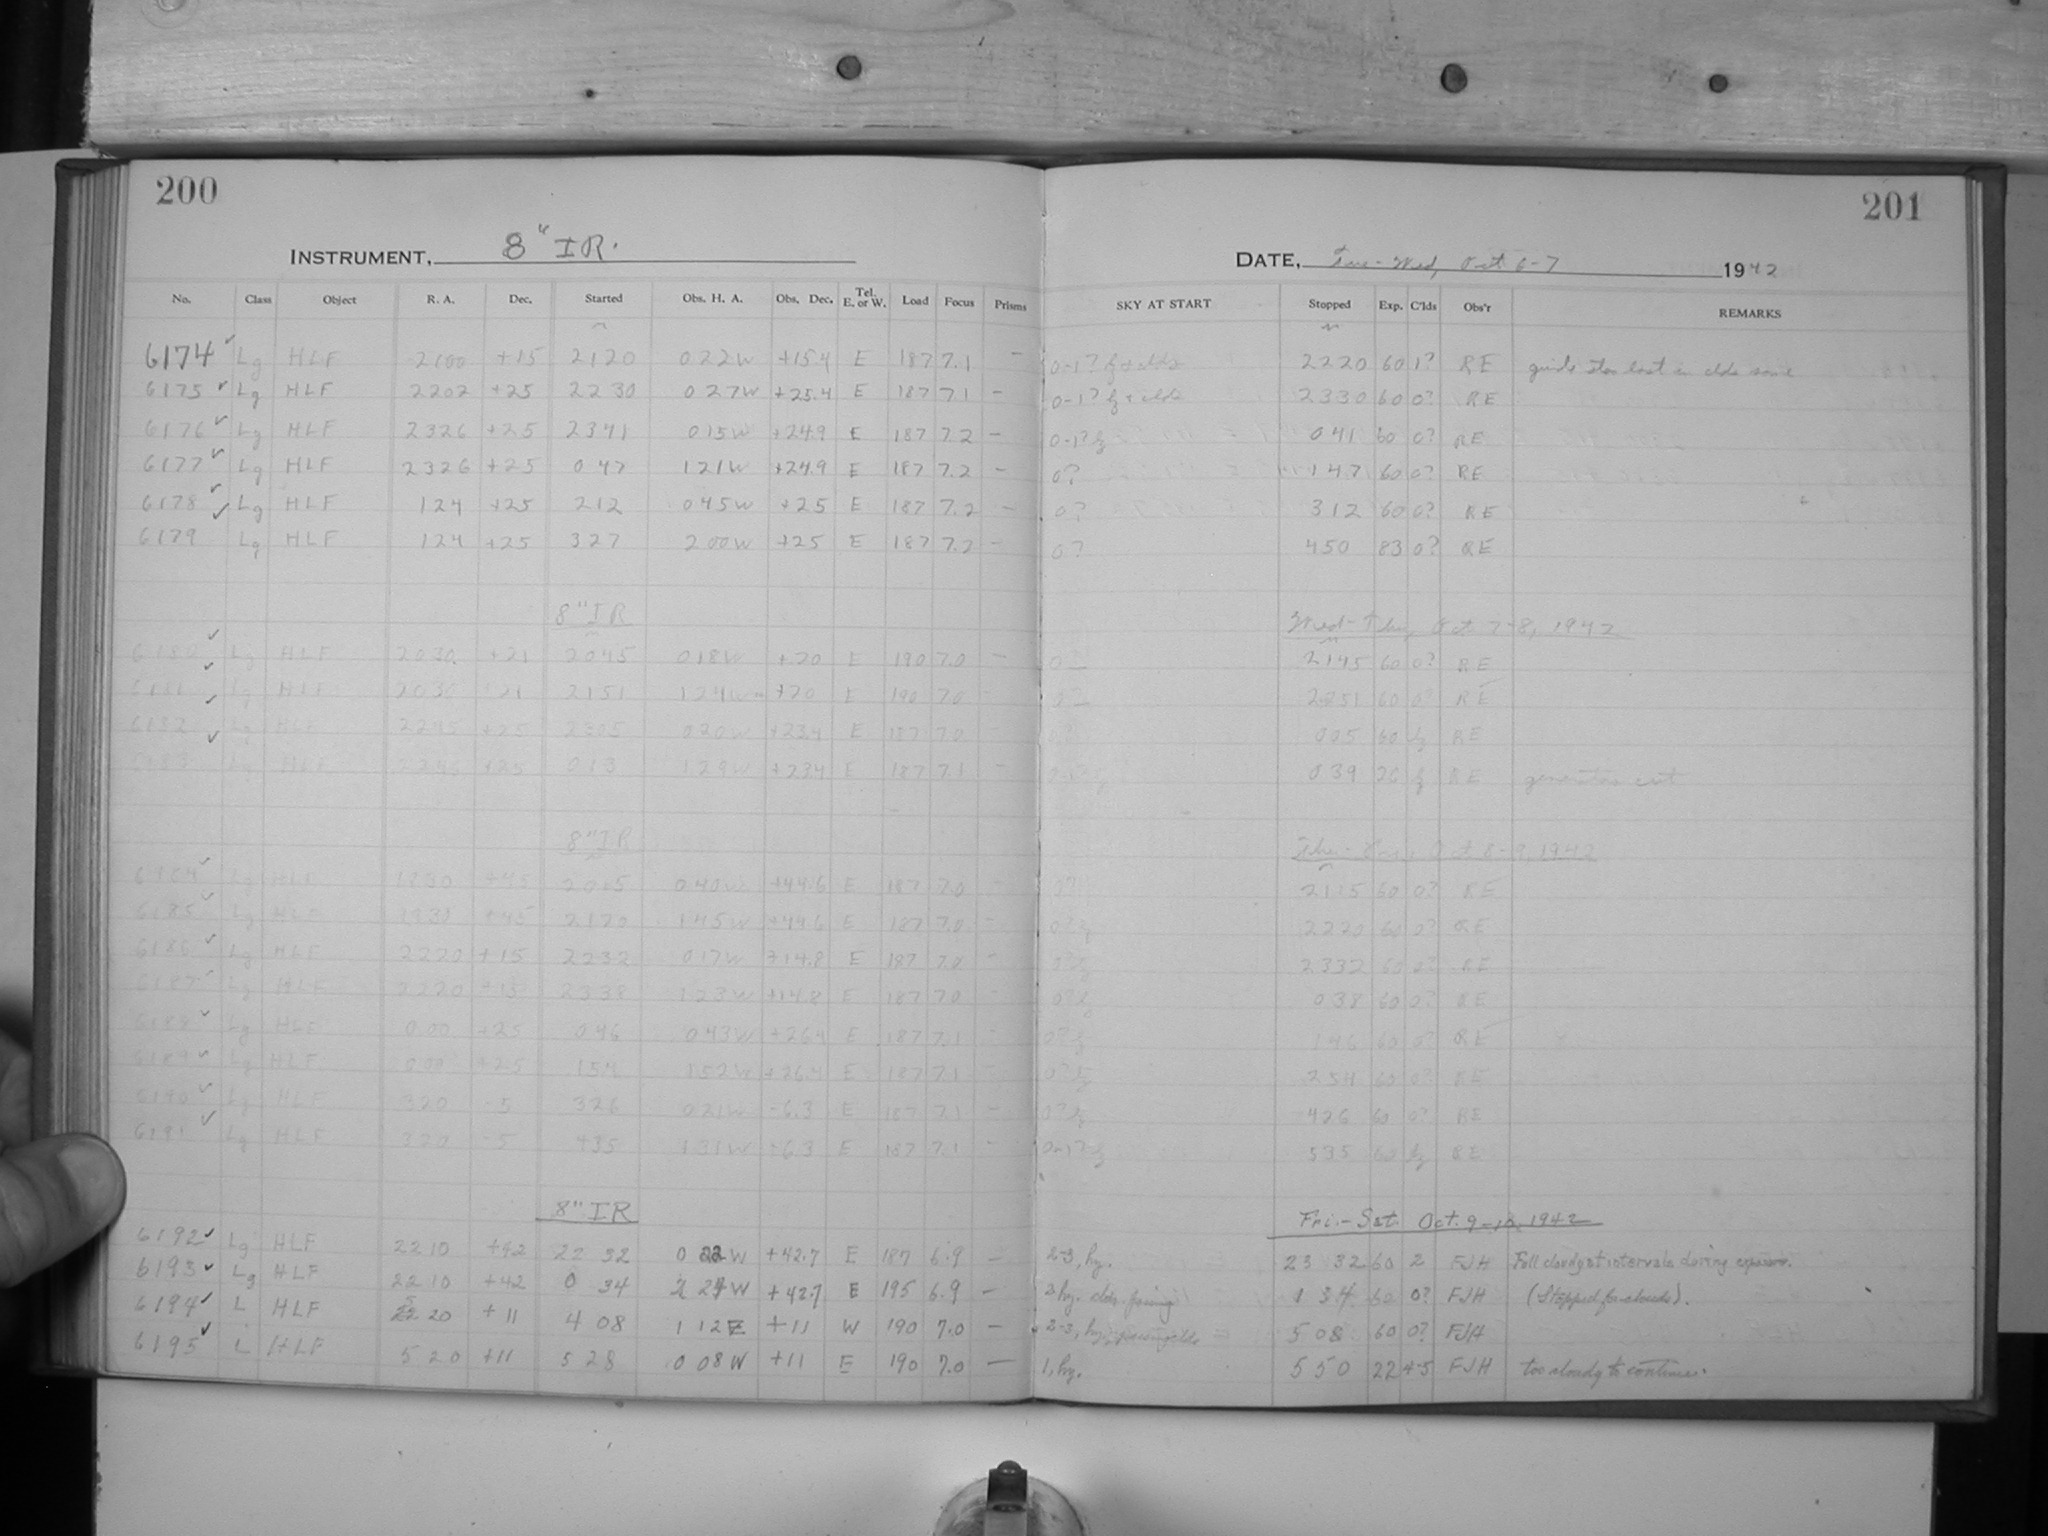 200
201
INSTRUMENT, 8" IR.
DATE, Tue-Wed, Oct 6-7 1942
No. Class Object R. A. Dec. Started Obs. H. A. Obs. Dec. Tel. E. or W. Load Focus Prisms SKY AT START Stopped Exp. C'lds Obs'r REMARKS
6174 Lg HLF 2100 +15 2120 022W +15.4 E 187 7.1 — 0-1? 2220 60 1? RE guide star lost in clds
6175 Lg HLF 2202 +25 2230 027W +25.4 E 187 7.1 — 0-1? 2330 60 0? RE
6176 Lg HLF 2326 +25 2341 015W +24.9 E 187 7.2 — 0-1? 041 60 0? RE
6177 Lg HLF 2326 +25 047 121W +24.9 E 187 7.2 — 0? 147 60 0? RE
6178 Lg HLF 124 +25 212 045W +25 E 187 7.2 — 0? 312 60 0? RE
6179 Lg HLF 124 +25 327 200W +25 E 187 7.2 — 0? 450 83 0? RE
8" IR Wed-Thu, Oct 7-8, 1942
6180 Lg HLF 2030 +21 2045 018W +20 E 190 7.0 — 2145 60 0? RE
6181 Lg HLF 2030 +21 2151 124W +20 E 190 7.0 2251 60 0? RE
6182 Lg HLF 2245 +25 2305 020W +23.4 E 187 7.0 005 60 RE
6183 Lg HLF 2245 +25 013 129W +23.4 E 187 7.1 — 039 26 RE generator cut
8" IR Oct 8-9, 1942
6184 Lg HLF 1930 +45 2015 040W +44.6 E 187 7.0 — 2115 60 0? RE
6185 Lg HLF 1930 +45 2120 145W +44.6 E 187 7.0 — 2220 60 0? RE
6186 Lg HLF 2220 +15 2232 017W +14.8 E 187 7.0 — 2332 60 0? RE
6187 Lg HLF 2220 +15 2338 123W +14.8 E 187 7.0 038 60 0? RE
6188 Lg HLF 000 +25 046 043W +26.4 E 187 7.1 146 60 0? RE
6189 Lg HLF 000 +25 154 152W +26.4 E 187 7.1 254 60 0? RE
6190 Lg HLF 320 -5 326 021W -6.3 E 187 7.1 — 426 60 0? RE
6191 Lg HLF 320 -5 435 131W -6.3 E 187 7.1 — 535 60 RE
8" IR Fri.-Sat. Oct. 9-10, 1942
6192 Lg HLF 22 10 +42 22 32 0 22 W +42.7 E 187 6.9 — 2-3, hz. 23 32 60 2 FJH Full cloudy at intervals during exposure.
6193 Lg HLF 22 10 +42 0 34 2 24 W +42.7 E 195 6.9 — 2 hz. clds. passing 1 34 60 0? FJH (Stopped for clouds).
6194 L HLF 5 20 +11 4 08 1 12 E +11 W 190 7.0 — 2-3, hz., passing clds 5 08 60 0? FJH
6195 L HLF 5 20 +11 5 28 0 08 W +11 E 190 7.0 — 1, hz. 5 50 22 4-5 FJH too cloudy to continue.